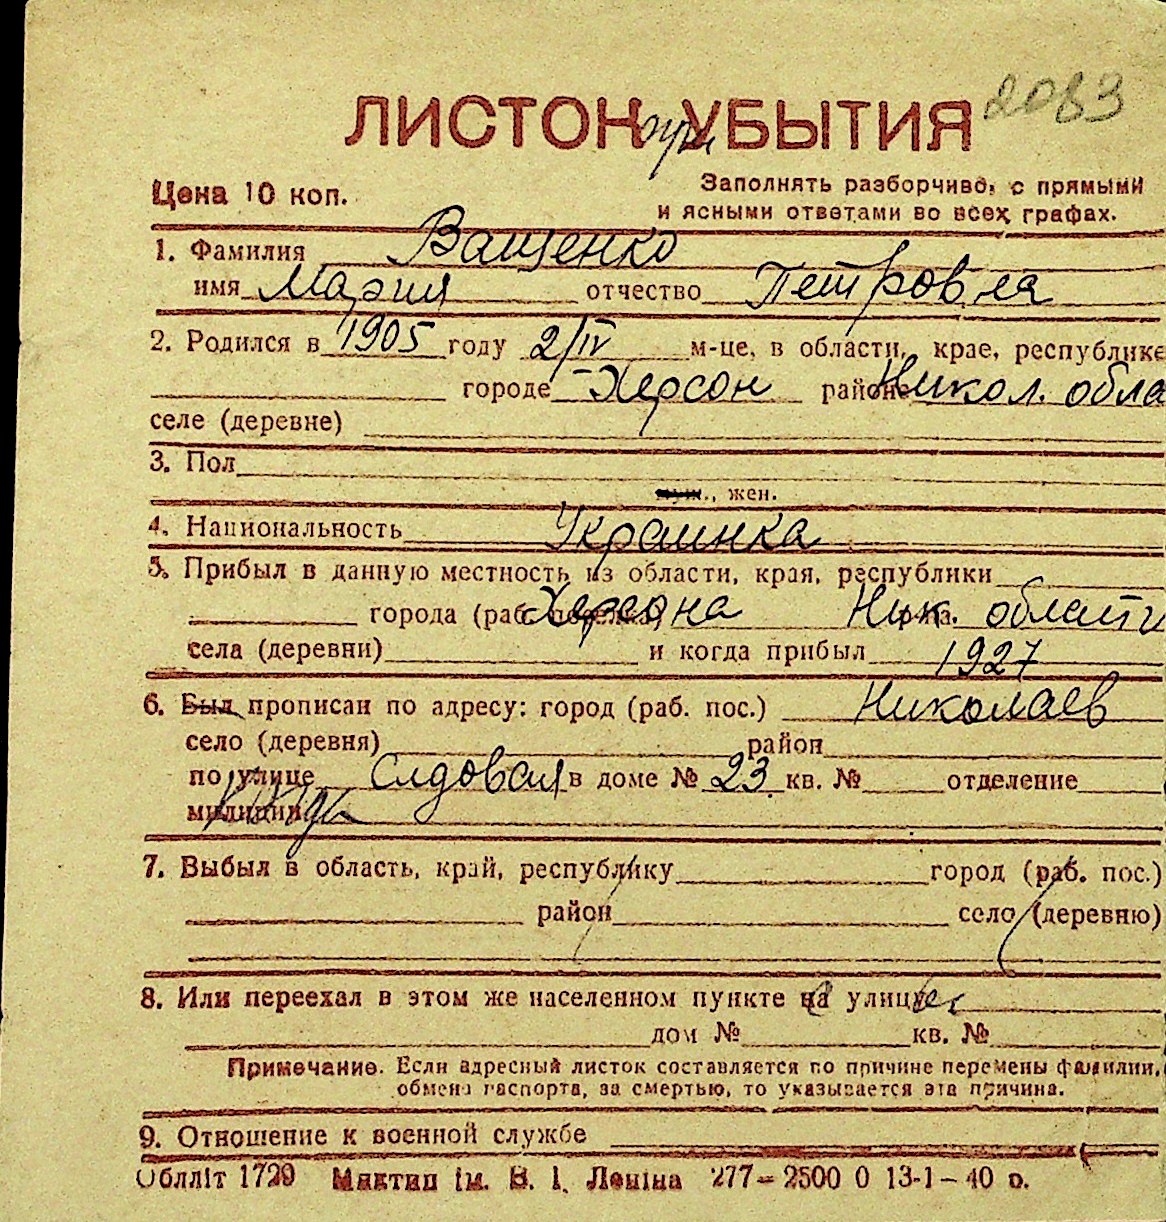 2083
ЛИСТОК УБЫТИЯ
Цена 10 коп.
Заполнять разборчиво, с прямыми
и ясными ответами во всех графах.
1. Фамилия Ващенко
имя Мария отчество Петровна
2. Родился в 1905 году 2/IV м-це, в области, крае, республике
городе Херсон районе Никол. обла
селе (деревне)
3. Пол
муж., жен.
4. Национальность Украинка
5. Прибыл в данную местность из области, края, республики
города (раб. поселка) Херсона р-на Ник. области
села (деревни) и когда прибыл 1927
6. Был прописан по адресу: город (раб. пос.) Николаев
село (деревня) район
по улице Садовая в доме № 23 кв. № отделение
милиции
7. Выбыл в область, край, республику город (раб. пос.)
район село (деревню)
8. Или переехал в этом же населенном пункте на улицу
дом № кв. №
Примечание. Если адресный листок составляется по причине перемены фамилии,
обмена паспорта, за смертью, то указывается эта причина.
9. Отношение к военной службе
Облліт 1729 Миктип ім. В. І. Леніна 277–2500 0 13-1–40 р.